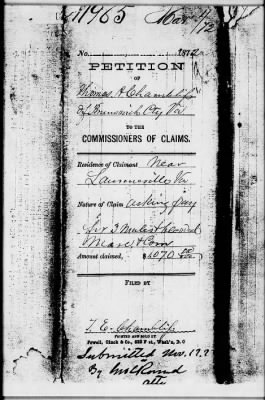 11965
Mar 4/72
No. 1872
PETITION
OF
Thomas H Chambliss
Of Brunswick Cty Va
TO THE
COMMISSIONERS OF CLAIMS.
Residence of Claimant Near
Va
Nature of Claim asking pay
for 3 Mules
Mare & Corn
Amount claimed, $
FILED BY
T. E. Chambliss
PRINTED AND SOLD BY
Powell, Ginck & Co., 632 F st., Wash'n, D. C
Submitted Nov. 17.
By
atty